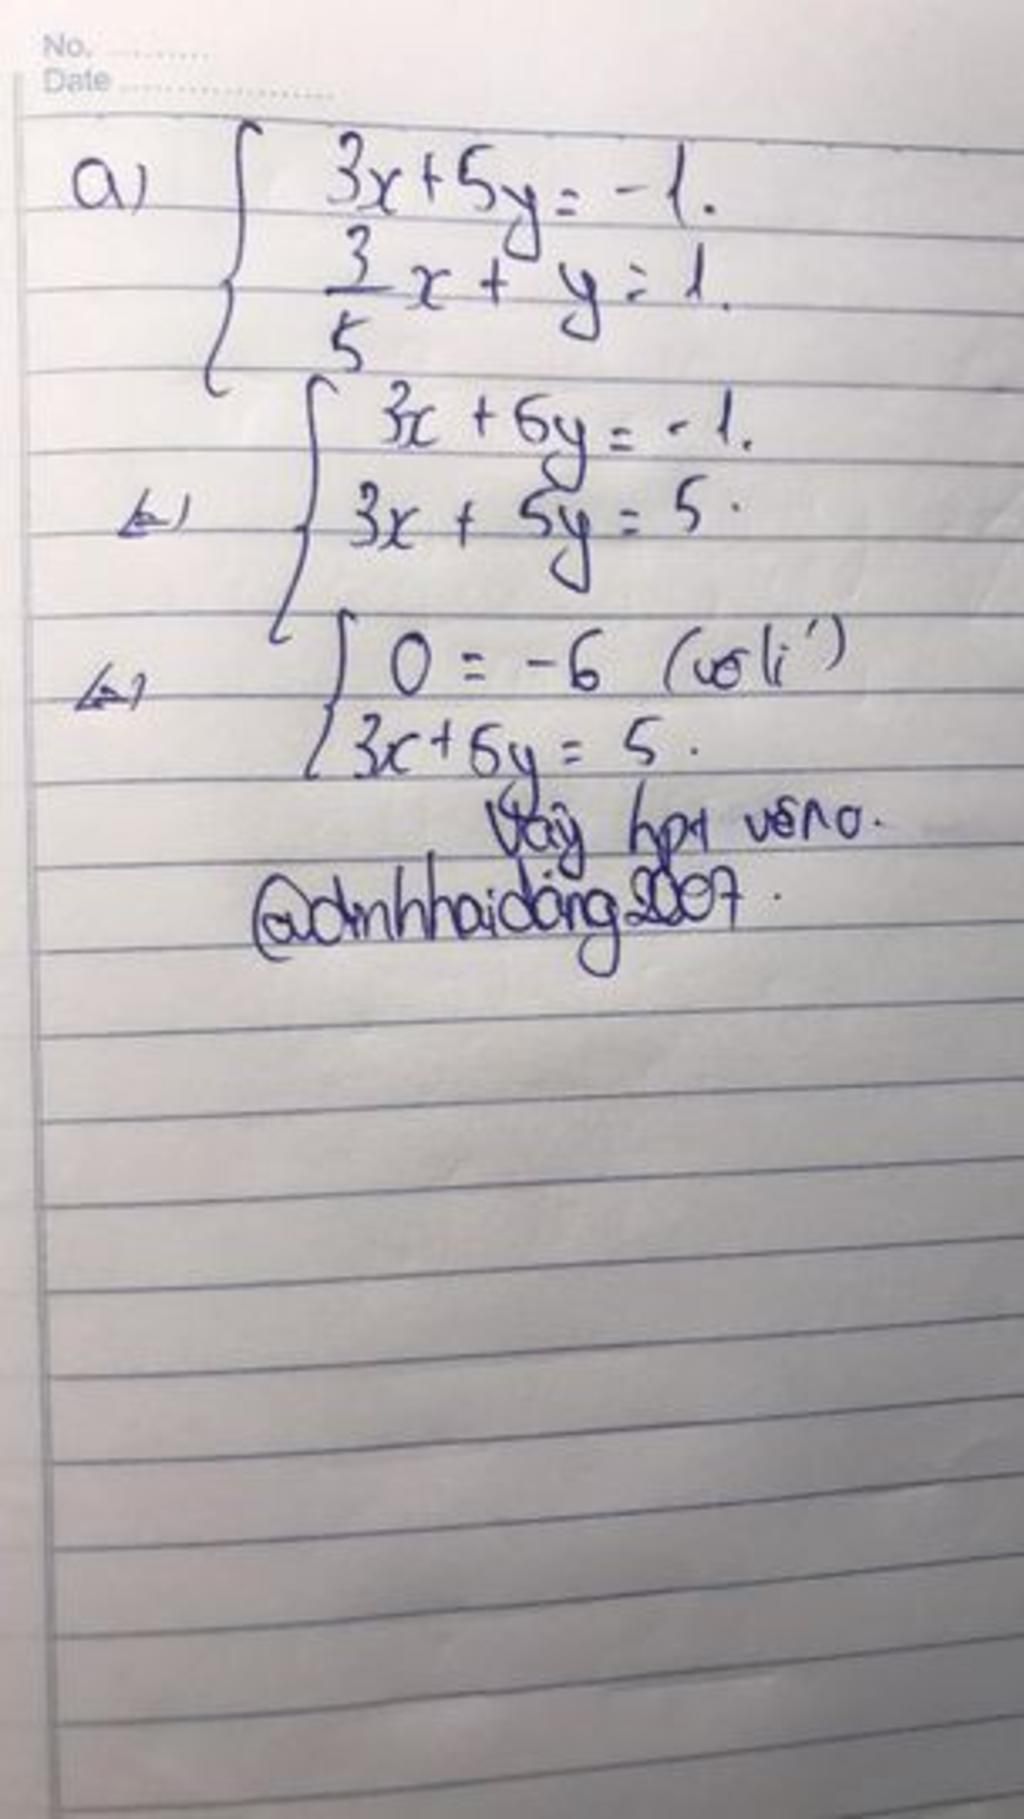 No. ..........
Date ....................
a) { 3x + 5y = -1.
3/5 x + y = 1.
<=> { 3x + 5y = -1.
3x + 5y = 5.
<=> { 0 = -6 (vô lí)
3x + 5y = 5.
Vậy hpt vô no.
@dinhhaidang2007.